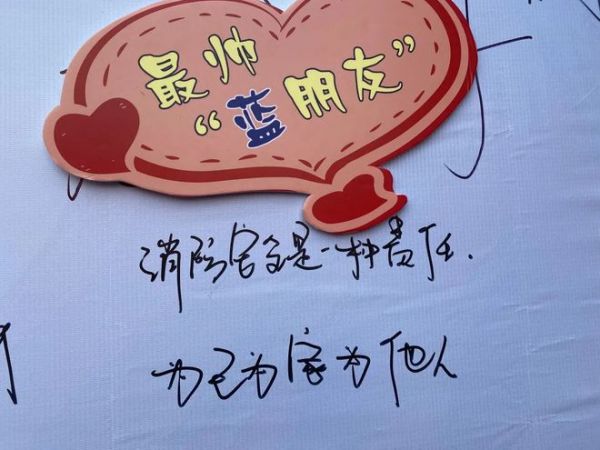 最帅
“蓝朋友”
消防安全是一种责任.
为己为家为他人